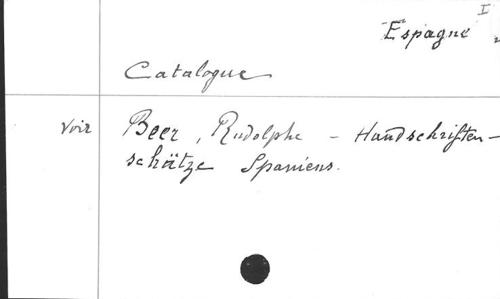 I
Espagne
Catalogue
Voir Beer, Rudolphe - Handschriften-
schätze Spaniens.